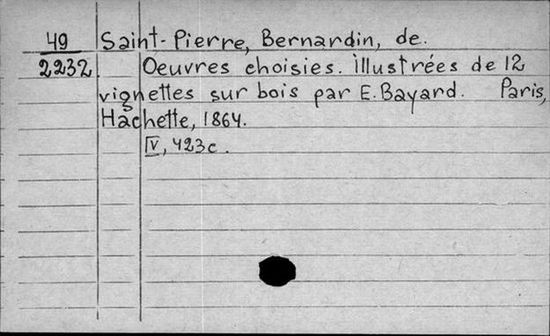 49 Saint-Pierre, Bernardin, de.
2232 Oeuvres choisies. illustrées de 12
vignettes sur bois par E. Bayard. Paris,
Hachette, 1864.
IV, 423c.